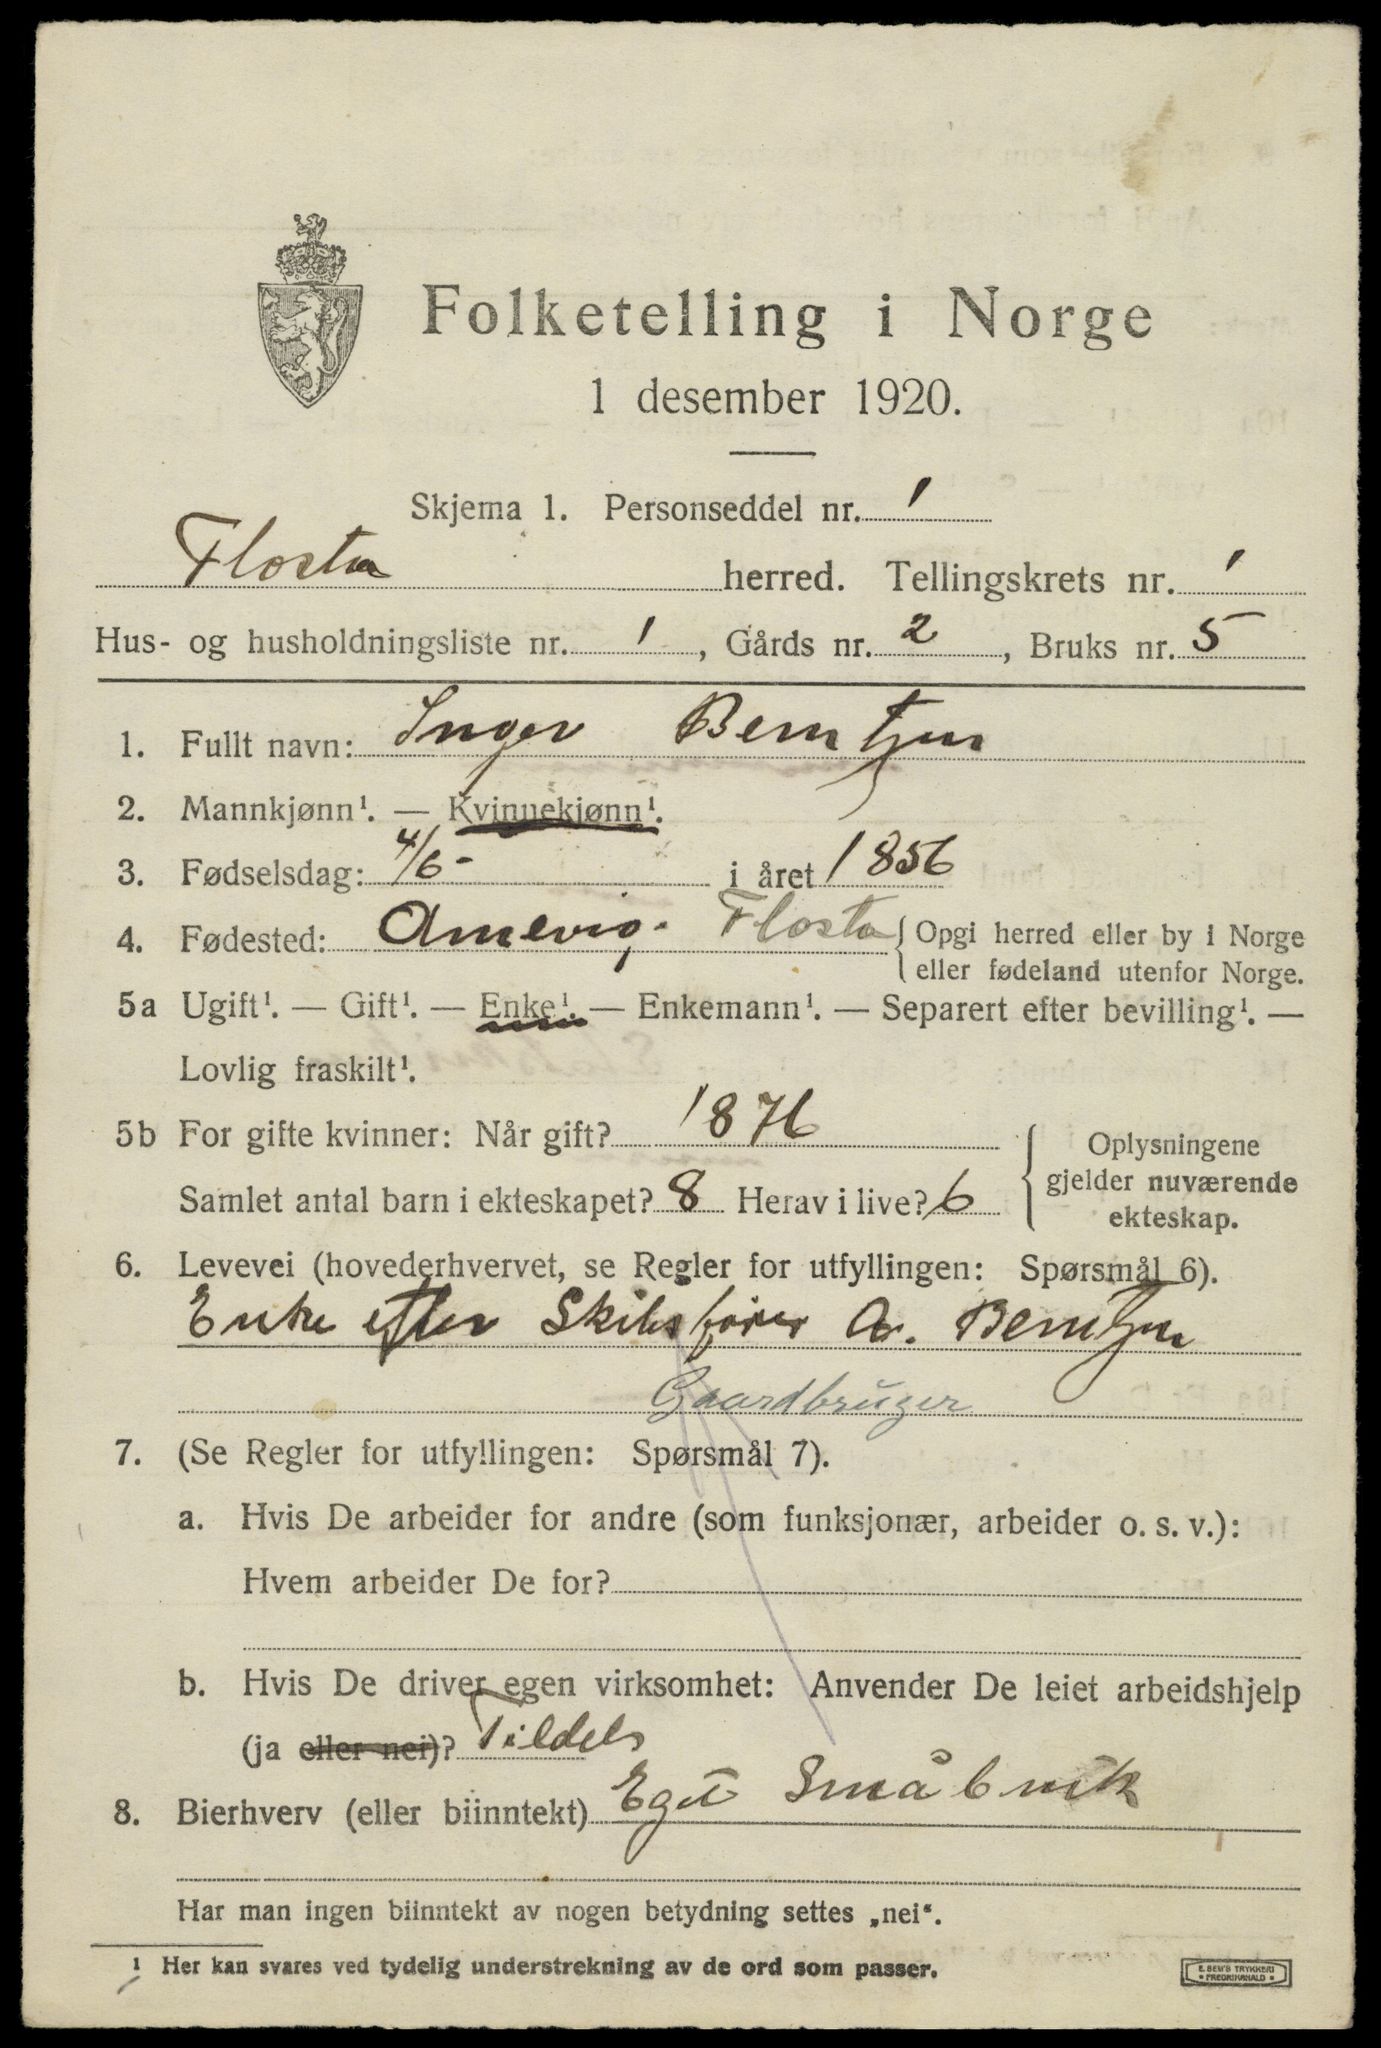 Folketelling i Norge
1 desember 1920.
Skjema 1. Personseddel nr. 1
Flosta herred. Tellingskrets nr. 1
Hus- og husholdningsliste nr. 1, Gårds nr. 2, Bruks nr. 5
1. Fullt navn: Inger Berntzen
2. Mannkjønn¹. — Kvinnekjønn¹.
3. Fødselsdag: 4/6- i året 1856
4. Fødested: Arnevig. Flosta { Opgi herred eller by i Norge
eller fødeland utenfor Norge.
5a Ugift¹. — Gift¹. — Enke¹. — Enkemann¹. — Separert efter bevilling¹. —
Lovlig fraskilt¹.
5b For gifte kvinner: Når gift? 1876
Samlet antal barn i ekteskapet? 8 Herav i live? 6
Oplysningene
gjelder nuværende
ekteskap.
6. Levevei (hovederhvervet, se Regler for utfyllingen: Spørsmål 6).
Enke efter Skibsfører A. Berntzen
Gaardbruger
7. (Se Regler for utfyllingen: Spørsmål 7).
a. Hvis De arbeider for andre (som funksjonær, arbeider o. s. v.):
Hvem arbeider De for?
b. Hvis De driver egen virksomhet: Anvender De leiet arbeidshjelp
(ja eller nei)? Tildels
8. Bierhverv (eller biinntekt) Eget Småbruk
Har man ingen biinntekt av nogen betydning settes „nei“.
¹ Her kan svares ved tydelig understrekning av de ord som passer.
E. SEM'S TRYKKERI
FREDRIKSHALD